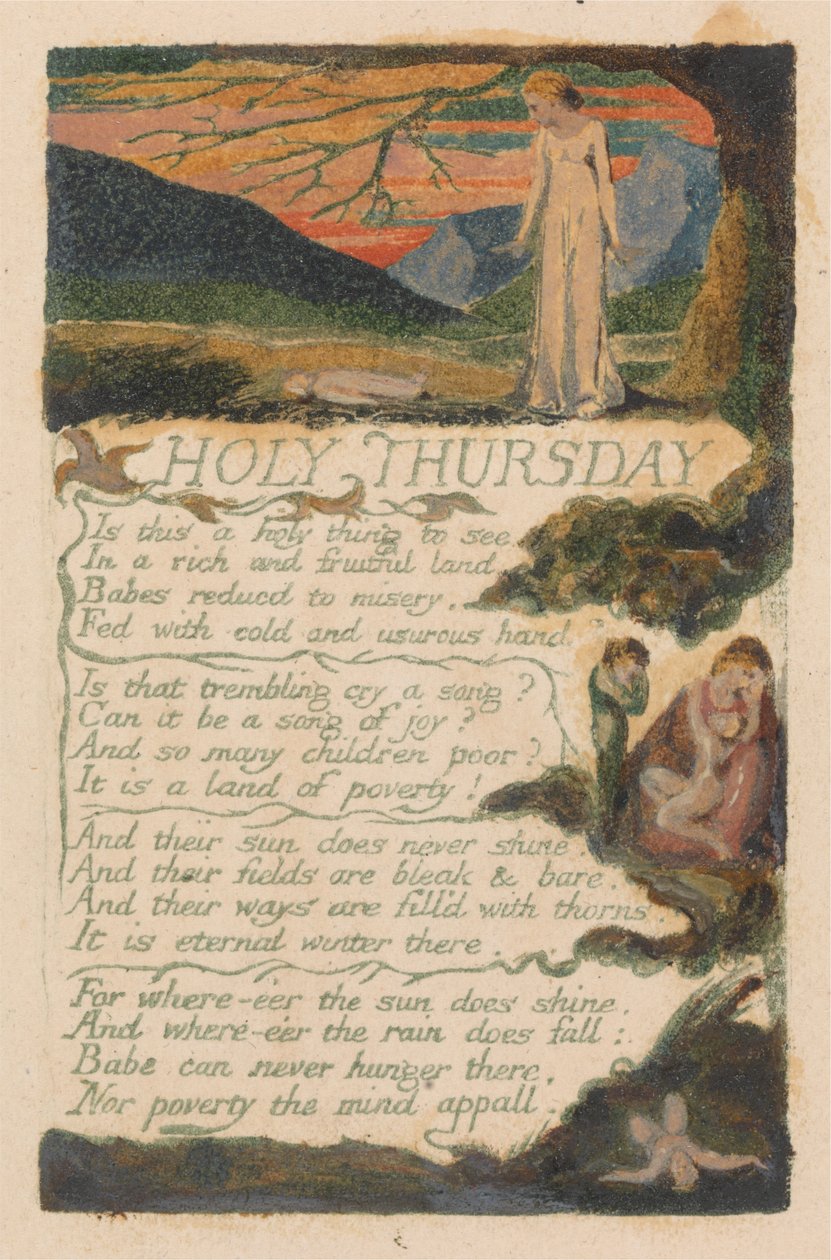 HOLY THURSDAY
Is this a holy thing to see.
In a rich and fruitful land.
Babes reducd to misery.
Fed with cold and usurous hand?
Is that trembling cry a song?
Can it be a song of joy?
And so many children poor?
It is a land of poverty!
And their sun does never shine.
And their fields are bleak & bare.
And their ways are fill'd with thorns.
It is eternal winter there.
For where-e'er the sun does shine.
And where-e'er the rain does fall:
Babe can never hunger there.
Nor poverty the mind appall.